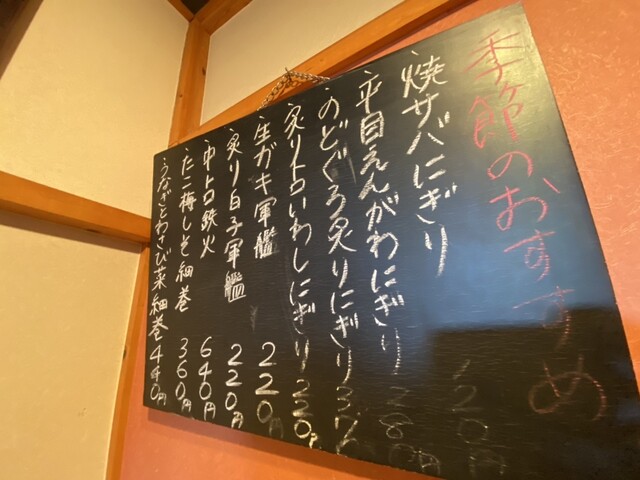 季節のおすすめ
焼サバにぎり 120円
平目えんがわにぎり 280円
のどぐろ炙りにぎり 37
炙りトロいわしにぎり 220円
生ガキ軍艦 220円
炙り白子軍艦 220円
中トロ鉄火 640円
たこ梅しそ細巻 360円
うなぎとわさび菜細巻 440円